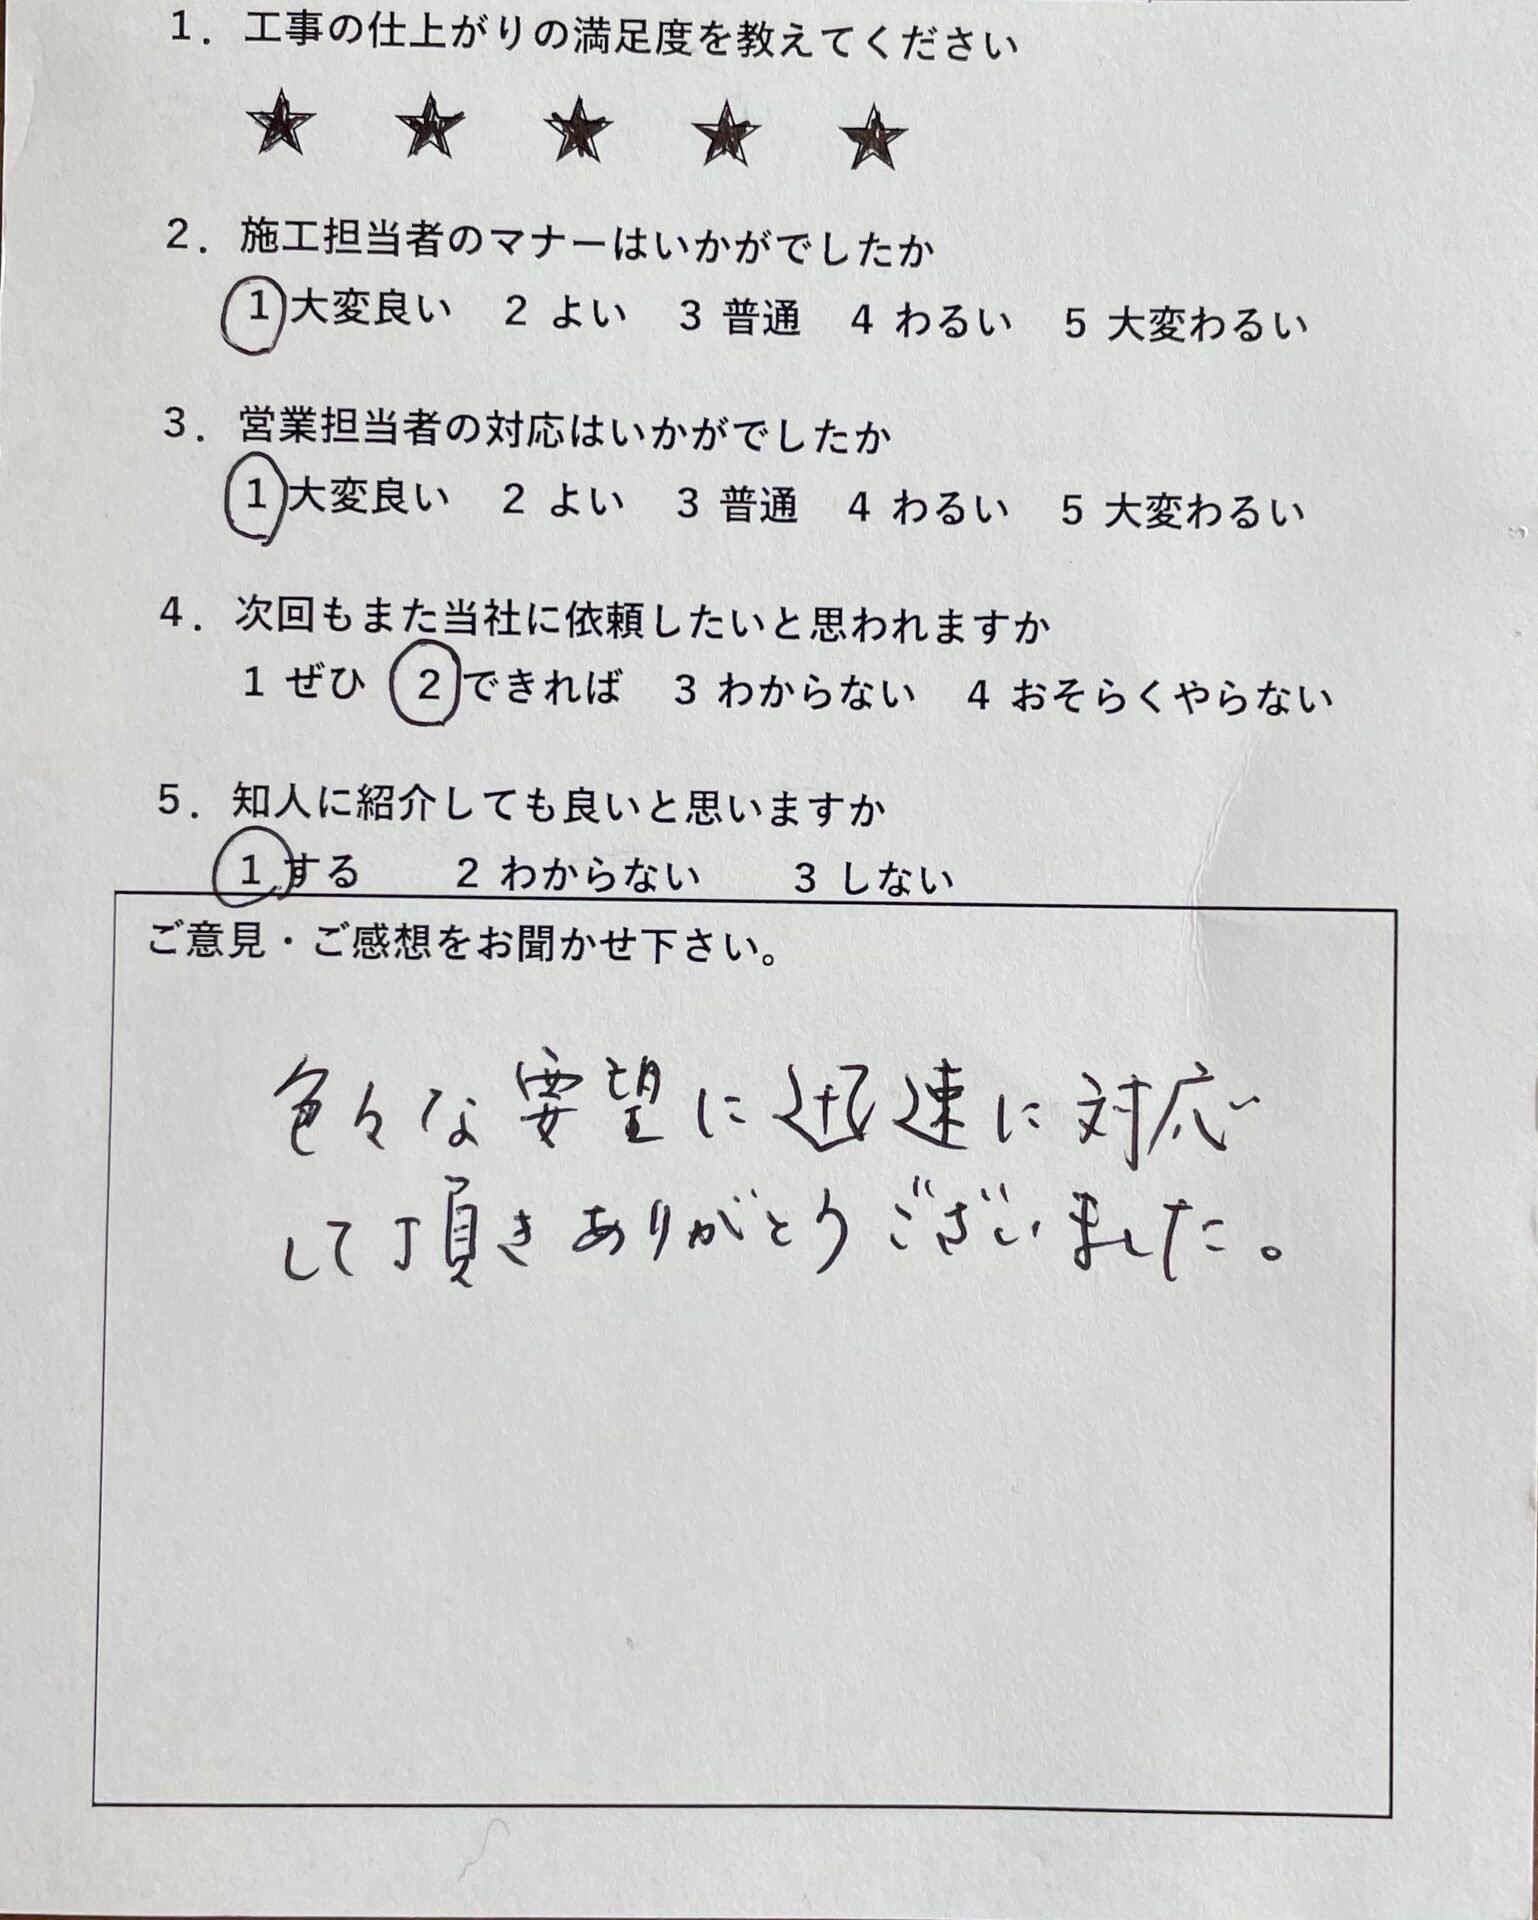 1. 工事の仕上がりの満足度を教えてください
★ ★ ★ ★ ★
2. 施工担当者のマナーはいかがでしたか
1 大変良い 2 よい 3 普通 4 わるい 5 大変わるい
3. 営業担当者の対応はいかがでしたか
1 大変良い 2 よい 3 普通 4 わるい 5 大変わるい
4. 次回もまた当社に依頼したいと思われますか
1 ぜひ 2 できれば 3 わからない 4 おそらくやらない
5. 知人に紹介しても良いと思いますか
1 する 2 わからない 3 しない
ご意見・ご感想をお聞かせ下さい。
色々な要望に迅速に対応
して頂きありがとうございました。